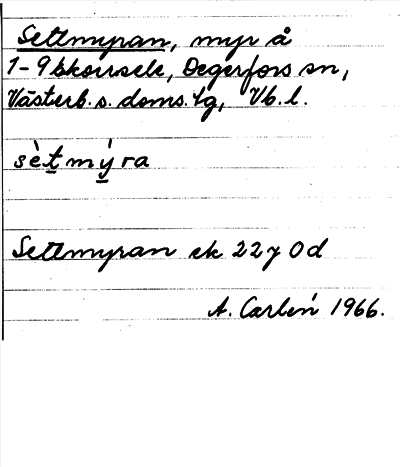 Settmyran, myr å
1-9 bkoussele, Degerfors sn,
Västerb. s. doms. tg, Vb. l.
sètmýra
Settmyran ek 22 7 0 d
A. Carlén 1966.